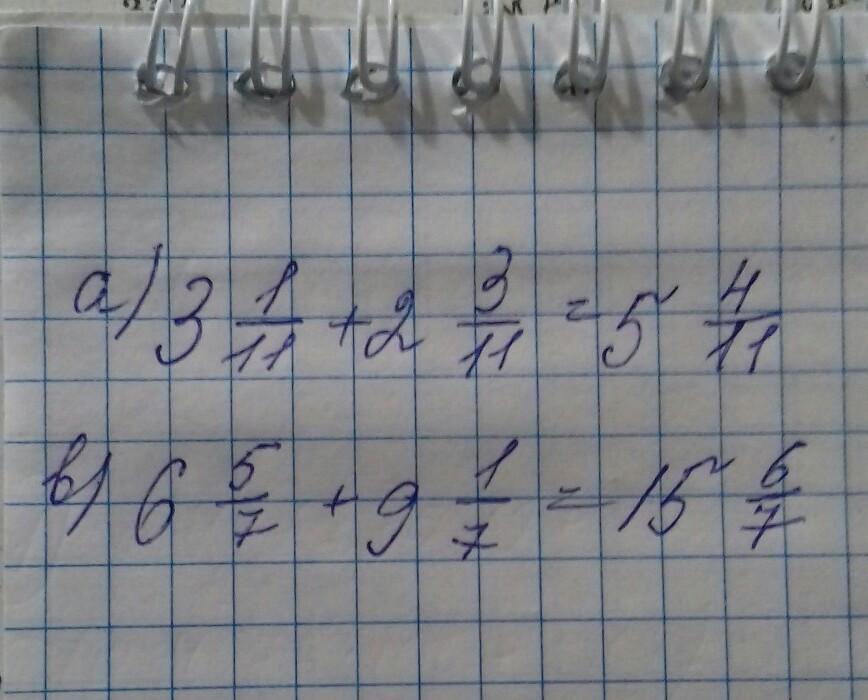 а) 3 1/11 + 2 3/11 = 5 4/11
в) 6 5/7 + 9 1/7 = 15 6/7